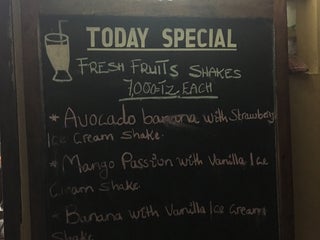 TODAY SPECIAL
FRESH FRUITS SHAKES
7,000 TZ EACH
* Avocado banana with Strawbery
Ice Cream Shake.
* Mango Passion with Vanilla Ice
Cream Shake.
* Banana with Vanilla Ice Cream
Shake